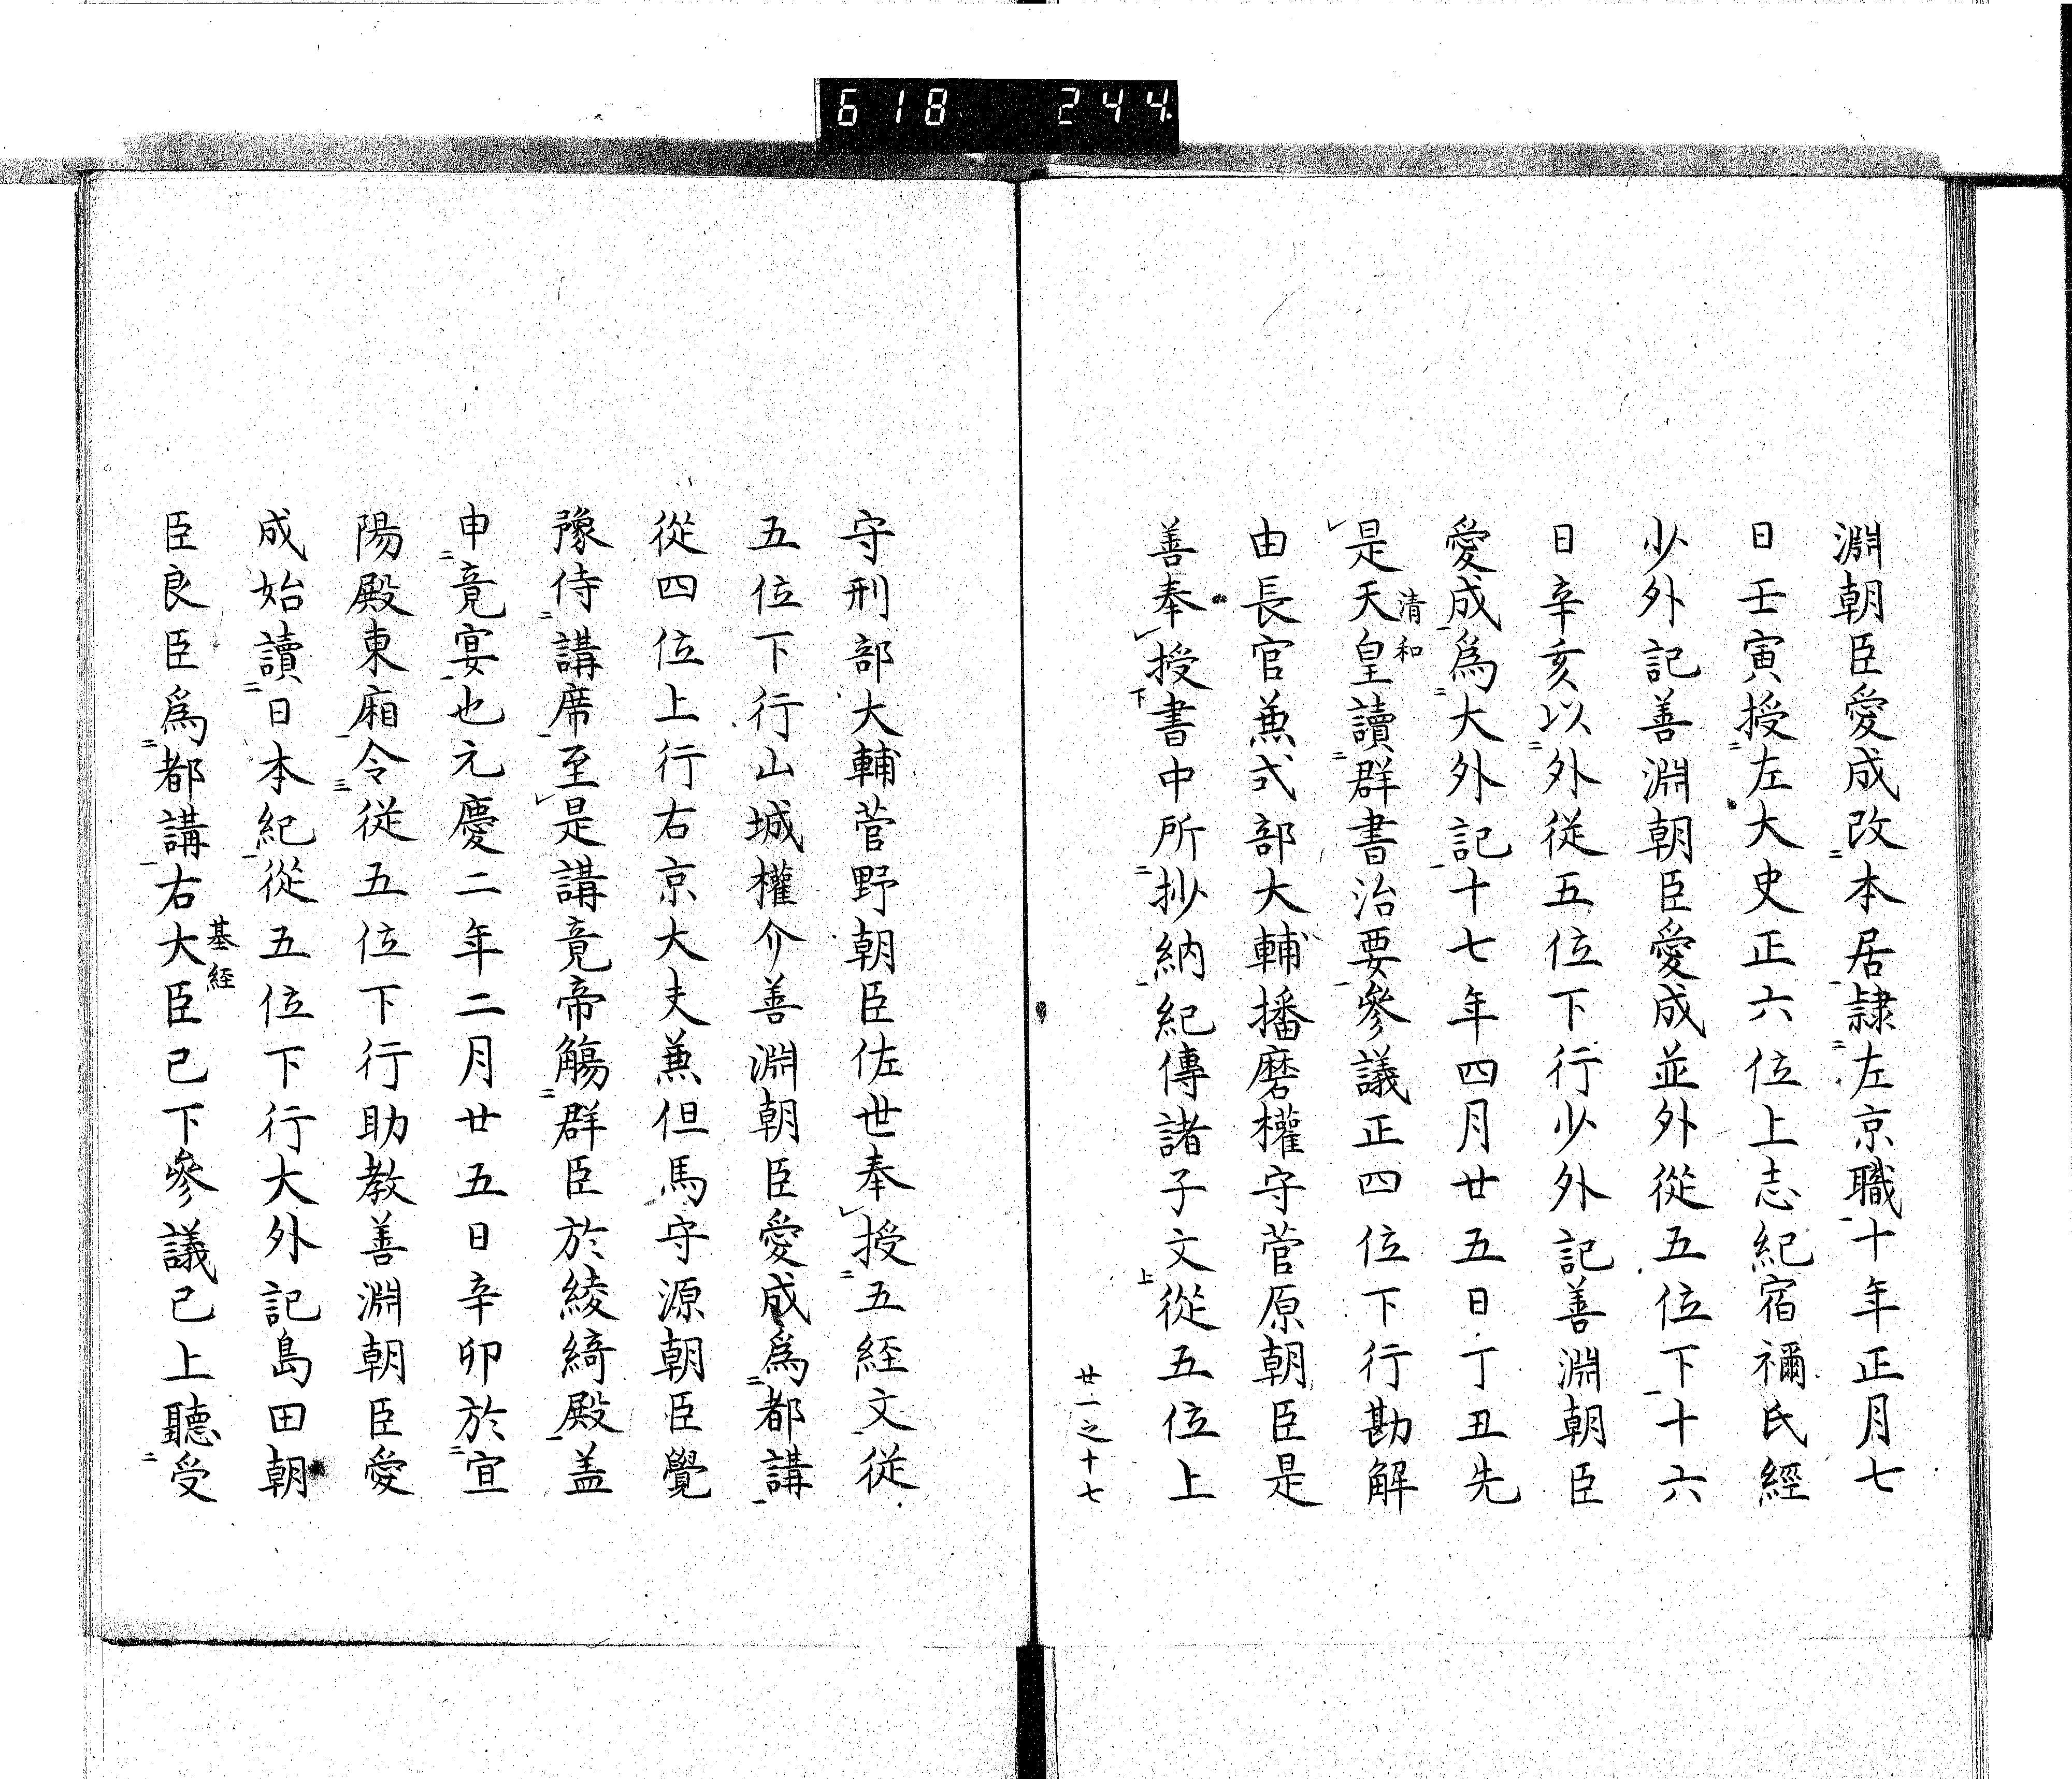 618 244.
淵朝臣愛成改本居隷左京職十年正月七
日壬寅授左大史正六位上志紀宿禰氏經
少外記善淵朝臣愛成並外從五位下十六
日辛亥以外從五位下行少外記善淵朝臣
愛成爲大外記十七年四月廿五日丁丑先
清和
是天皇讀群書治要參議正四位下行勘解
由長官兼式部大輔播磨權守菅原朝臣是
善奉授書中所抄納紀傳諸子文從五位上
廿一之十七
守刑部大輔菅野朝臣佐世奉授五経文從
五位下行山城權介善淵朝臣愛成爲都講
從四位上行右京大夫兼但馬守源朝臣覺
豫侍講席至是講竟帝觴群臣於綾綺殿盖
申竟宴也元慶二年二月廿五日辛卯於宜
陽殿東廂令從五位下行助教善淵朝臣愛
成始讀日本紀從五位下行大外記島田朝
基経
臣良臣爲都講右大臣已下參議已上聽受